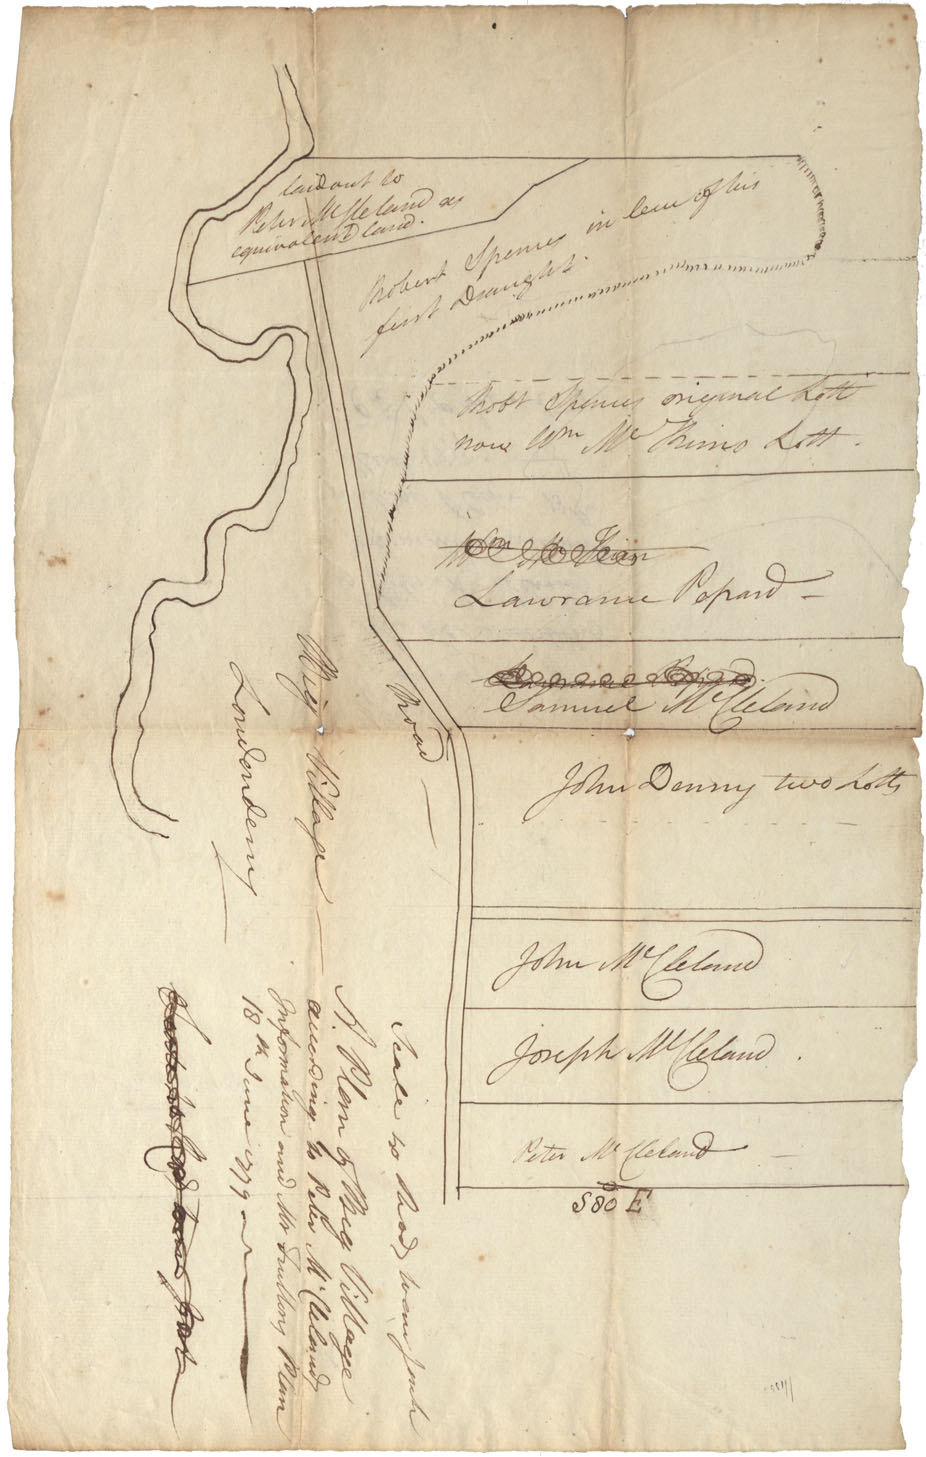 laid out to
Peter McCleland as
equivalent land.
Robert Spences in lieu of his
first Draught.
Robt Spences original Lott
now Wm Mc Lott.
Lawrance Pepard
Samuel McCleland
John Denny two Lotts
John McCleland
Joseph McCleland.
Peter McCleland
S 80° E
Road
Big Village
Londonderry
Scale 40 Rods to an Inch
A Plan of Big Village
according to Peter McClelands
Information and Mr Plan
18th June 1779